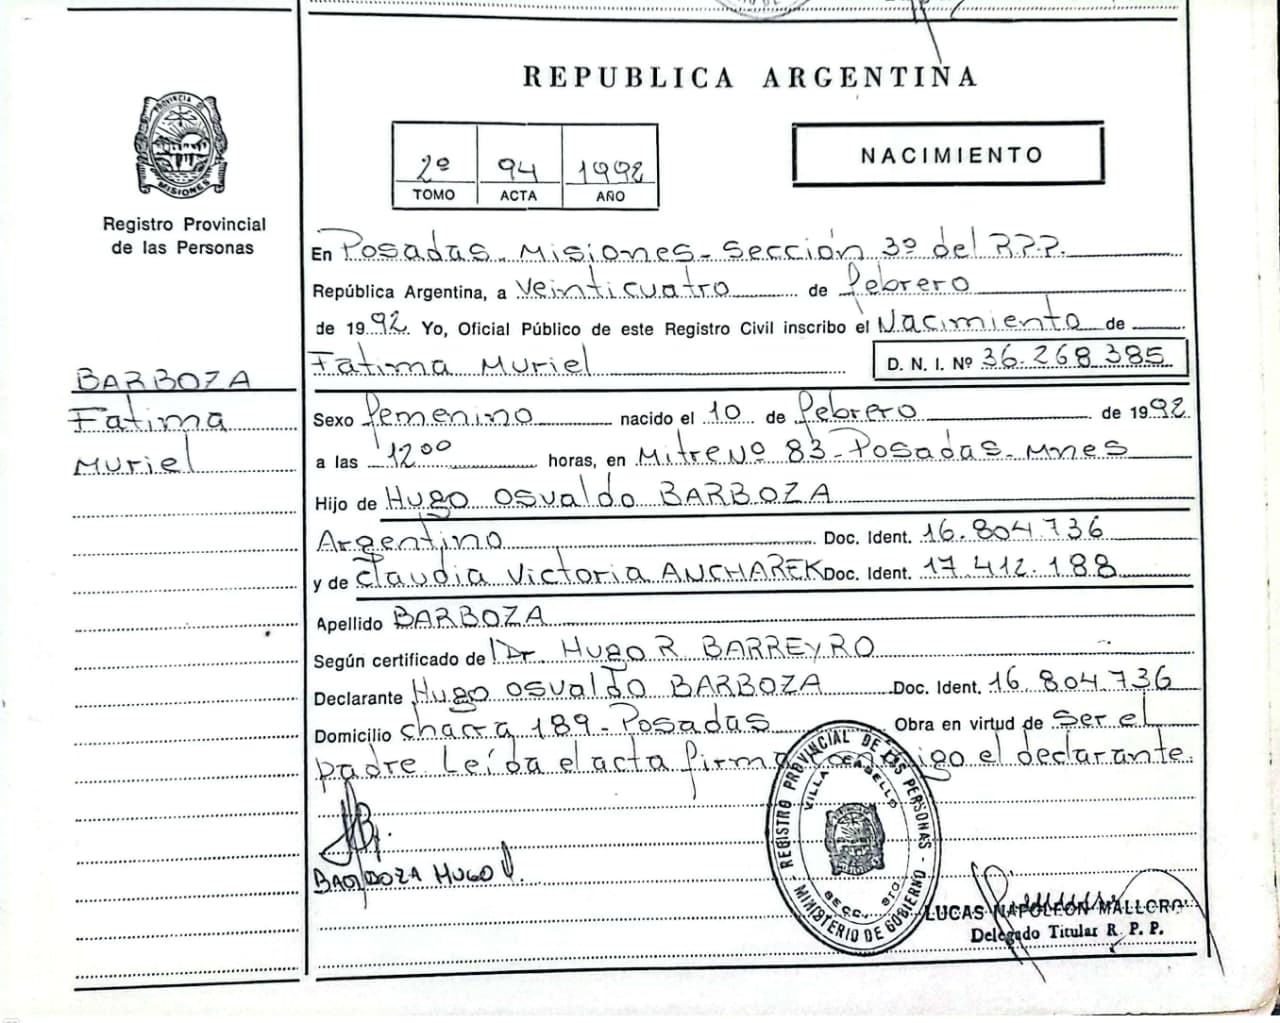 REPUBLICA ARGENTINA
PROVINCIA DE
MISIONES
Registro Provincial
de las Personas
2º 94 1992
TOMO ACTA AÑO
NACIMIENTO
En Posadas - Misiones - Sección 3º del R.P.P.
República Argentina, a veinticuatro de febrero
de 1992. Yo, Oficial Público de este Registro Civil inscribo el Nacimiento de
Fatima Muriel D. N. I. Nº 36.268.385
BARBOZA
Fatima
Muriel
Sexo femenino nacido el 10 de febrero de 1992
a las 12⁰⁰ horas, en Mitre Nº 83 - Posadas - Mnes
Hijo de Hugo Osvaldo BARBOZA
Argentino Doc. Ident. 16.804.736
y de Claudia Victoria ANCHAREK Doc. Ident. 17.412.188
Apellido BARBOZA
Según certificado de Dr. Hugo R BARREYRO
Declarante Hugo Osvaldo BARBOZA Doc. Ident. 16.804.736
Domicilio chacra 189 - Posadas Obra en virtud de ser el
padre. Leída el acta firma conmigo el declarante.
BARBOZA HUGO O.
REGISTRO PROVINCIAL DE LAS PERSONAS - MINISTERIO DE GOBIERNO -
VILLA CABELLO
SECC.
LUCAS NAPOLEON MALLORQ
Delegado Titular R. P. P.